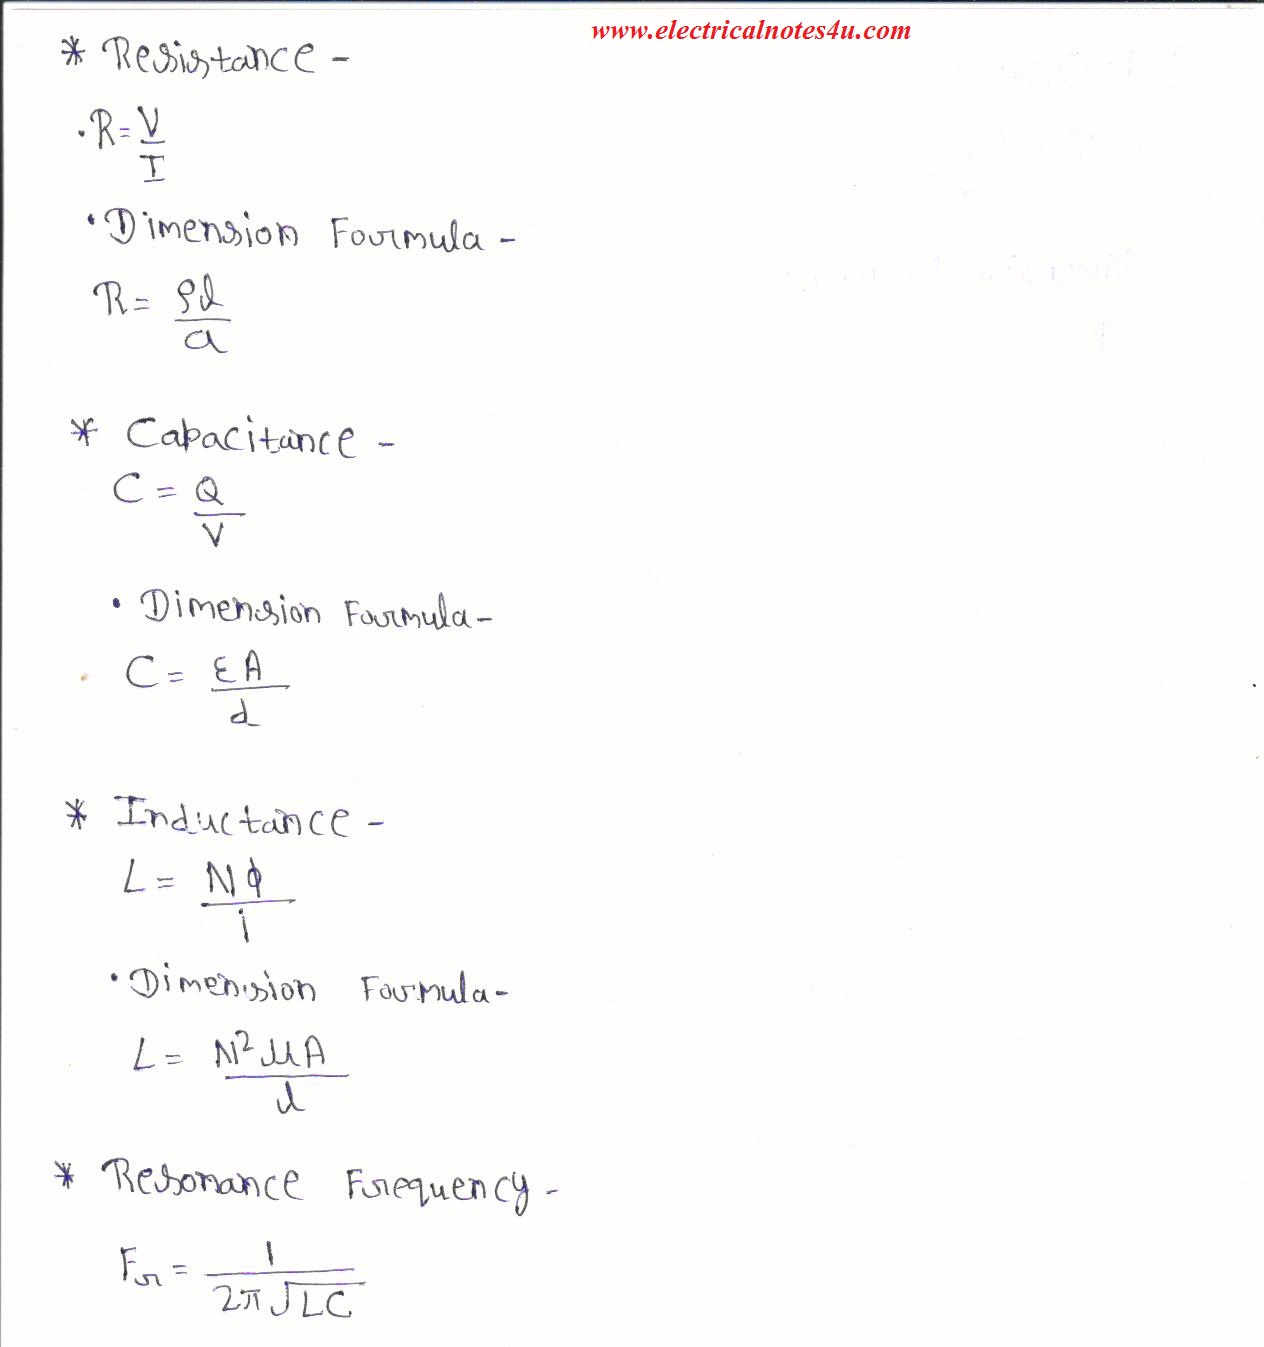 www.electricalnotes4u.com
* Resistance -
• R = V/I
• Dimension Formula -
R = ρl/a
* Capacitance -
C = Q/V
• Dimension Formula -
C = εA/d
* Inductance -
L = Nϕ/i
• Dimension Formula -
L = N²μA/l
* Resonance Frequency -
Fr = 1/2π√LC